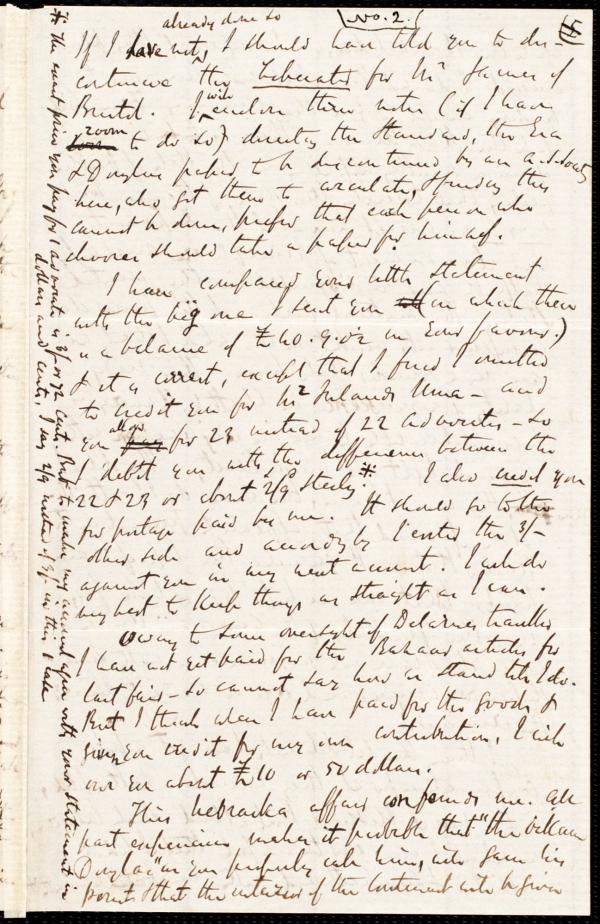 No. 2.
5
already done so
If I have not, I should have told you to dis-
continue the Liberator for Mr James of
Bristol. I will enclose three notes (if I have
room to do so) directing the Standard, the Era
& Douglass paper to be discontinued by an
here, who get them to circulate, & finding this
cannot be done, prefer that each person who
chooses should take a paper for himself.
I have compared your little statement
with the big one I sent you (in which there
is a balance of £40.9.02 in your favour.)
& it is correct, except that I find I omitted
to credit you for Mr Irelands Una - and
you allow for 23 instead of 22 advocates - so
I debit you with the difference between the
22 & 23 or about 2/9 *. I also credit you
for postage paid by me. It should go to the
other side and accordingly I enter the 3/-
against you in my next account. I will do
my best to keep things as straight as I can.
Owing to some oversight of
I have not yet paid for the Bazaar articles for
last fair - so cannot say how we stand till I do.
But I think when I have paid for the goods &
given you credit for my own contribution, I will
owe you about £10 or 50 dollars.
This Nebraska affair confounds me. All
past experience makes it probable that "the
Douglas" as you properly call him, will gain his
point & that the interior of the continent will be given
* the exact price you pay for 1 advocate is 3/- or 72 cents. But to make my account agree with your statement in
dollars and cents, I say 2/9 instead of 3/- in this 1 case